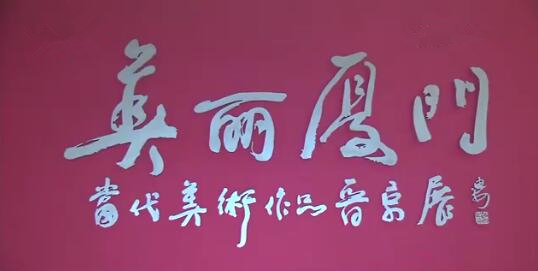 美丽厦門
當代美術作品晋京展